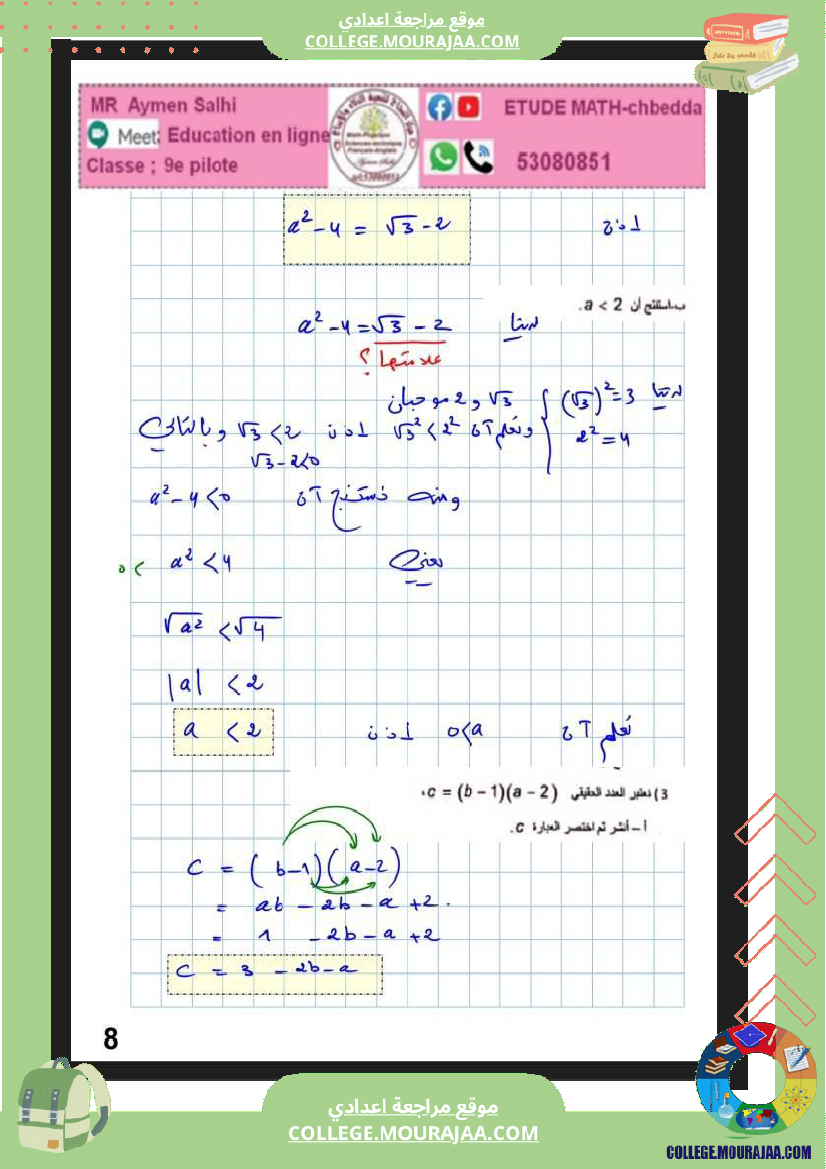 موقع مراجعة اعدادي
COLLEGE.MOURAJAA.COM
MR Aymen Salhi
Meet: Education en ligne
Classe ; 9e pilote
ETUDE MATH-chbedda
53080851
اذن a² - 4 = √3 - 2
ب-استنتج أن a < 2.
لدينا a² - 4 = √3 - 2
علامتها ؟
لدينا (√3)² = 3
2² = 4
√3 و 2 موجبان
ونعلم أن √3² < 2² اذن √3 < 2 وبالتالي
√3 - 2 < 0
ومنه نستنتج أن a² - 4 < 0
يعني 0 < a² < 4
√a² < √4
|a| < 2
نعلم أن 0 < a اذن a < 2
3) نعتبر العدد الحقيقي c = (b - 1)(a - 2)
أ – أنشر ثم اختصر العبارة c.
C = (b-1)(a-2)
= ab - 2b - a + 2.
= 1 - 2b - a + 2
C = 3 - 2b - a
8
موقع مراجعة اعدادي
COLLEGE.MOURAJAA.COM
COLLEGE.MOURAJAA.COM